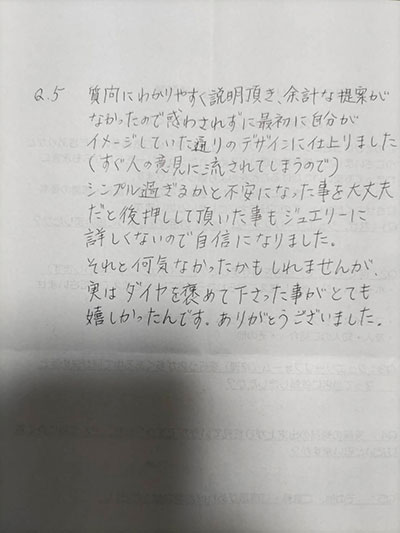 Q.5 質問にわかりやすく説明頂き、余計な提案が
なかったので惑わされずに最初に自分が
イメージしていた通りのデザインに仕上りました
(すぐ人の意見に流されてしまうので)
シンプル過ぎるかと不安になった事を大丈夫
だと後押しして頂いた事もジュエリーに
詳しくないので自信になりました。
それと何気なかったかもしれませんが、
実はダイヤを褒めて下さった事がとても
嬉しかったんです。ありがとうございました。